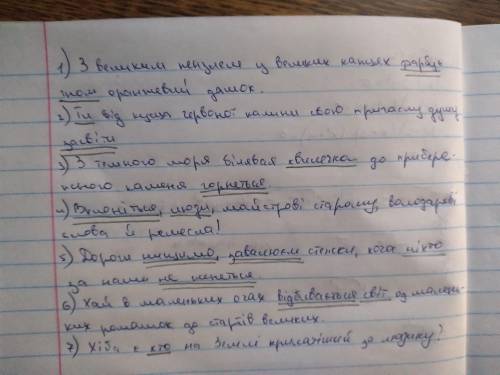 1) З великим пензлем у великих кап'ях фарбує
гном оранжевий дашок.
2) Ти від куща червоної калини свою пригаслу душу
засвіти
3) З темного моря білявая хвилечка до прибереж-
ного каменя горнеться
4) Вклоніться, люди, майстрові старому, володареві
слова й ремесла!
5) Дороги нищимо, завалюєм стежки, хоча ніхто
за нами не женеться.
6) Хай в маленьких очах відбивається світ од малень-
ких ромашок до стартів великих.
7) Хіба є хто на Землі крилатіший за людину?